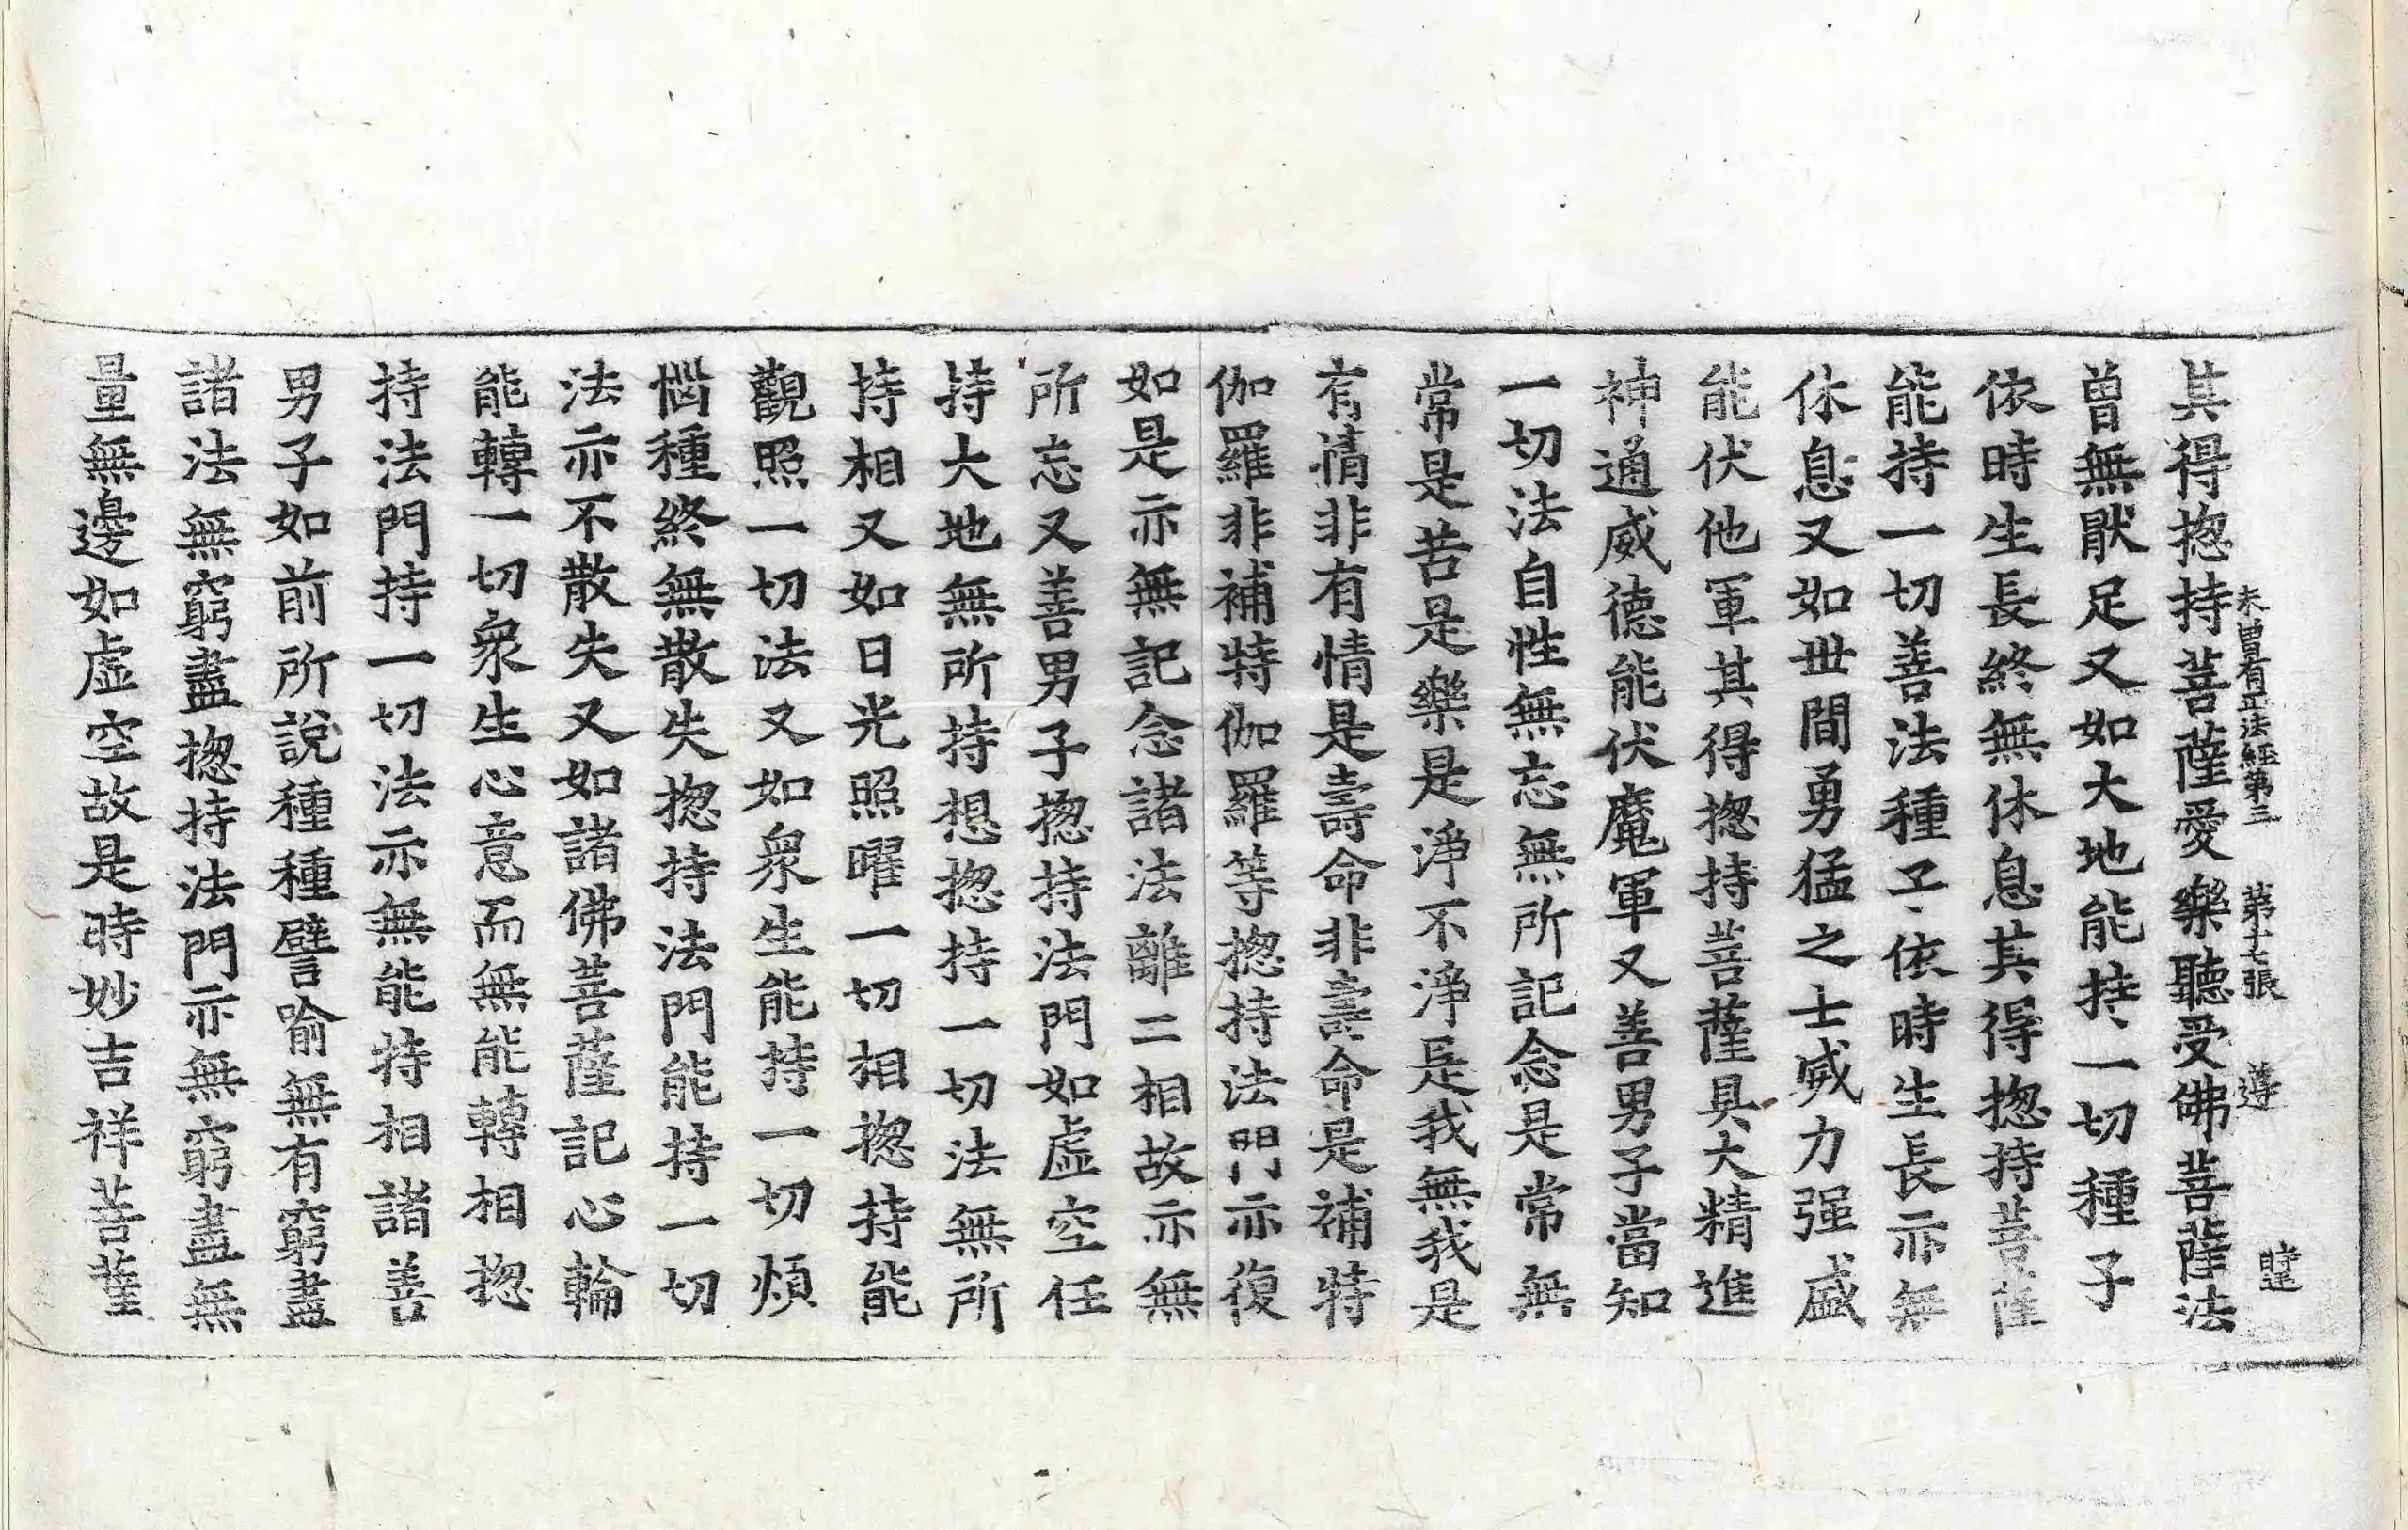 其得揔持菩薩愛樂聽受佛菩薩法
未曾有正法經第三 第十七張 遵
曾無猒足又如大地能持一切種子
依時生長終無休息其得揔持菩薩
能持一切善法種子依時生長亦無
休息又如世間勇猛之士威力强盛
能伏他軍其得揔持菩薩具大精進
神通威德能伏魔軍又善男子當知
一切法自性無忘無所記念是常無
常是苦是樂是淨不淨是我無我是
有情非有情是壽命非壽命是補特
伽羅非補特伽羅等揔持法門亦復
如是亦無記念諸法離二相故亦無
所忘又善男子揔持法門如虛空任
持大地無所持想揔持一切法無所
持相又如日光照曜一切相揔持能
觀照一切法又如衆生能持一切煩
惱種終無散失揔持法門能持一切
法亦不散失又如諸佛菩薩記心輪
能轉一切衆生心意而無能轉相揔
持法門持一切法亦無能持相諸善
男子如前所說種種譬喻無有窮盡
諸法無窮盡揔持法門亦無窮盡無
量無邊如虛空故是時妙吉祥菩薩